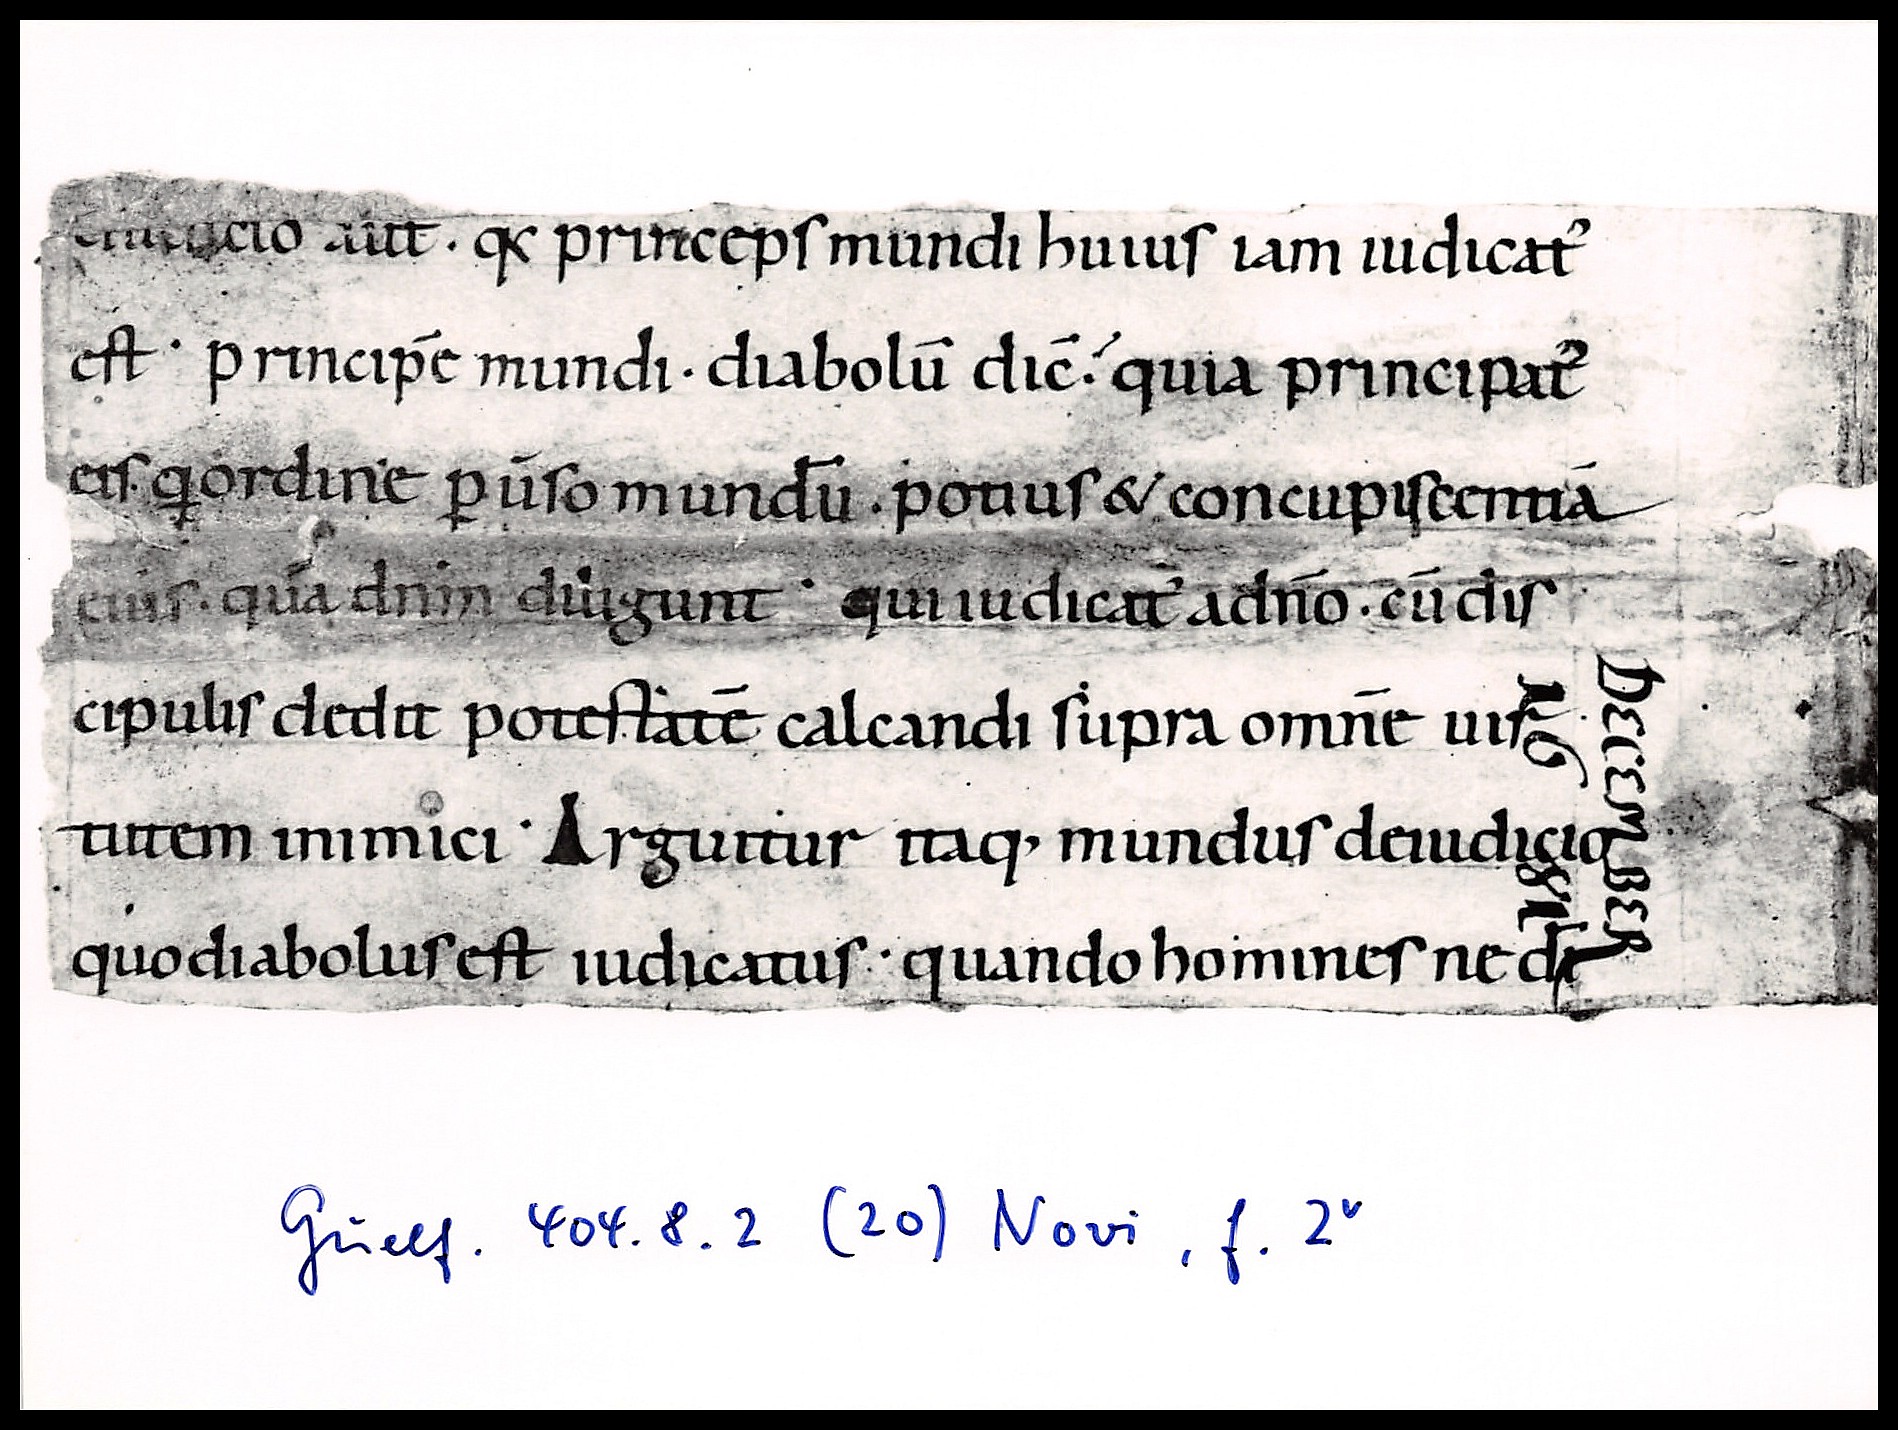 iudicio aut̄. qꝛ princeps mundi huius iam iudicat᷒
est. principē mundi. diabolū dic̄. quia principat᷒
eis. q̨ ordinē ꝑ ūso mund̄u. potius & concupiscentiā
eius. quā dn̄m diligunt. qui iudicat᷒ adn̄o. cū dis
cipulis dedit potestatē calcandi supra omnē uir
tutem inimici. Arguitur itaq, mundus de iudicio
quo diabolus est iudicatus. quando homines ne di
DECEMBER
Guelf. 404.8.2 (20) Novi, f. 2v